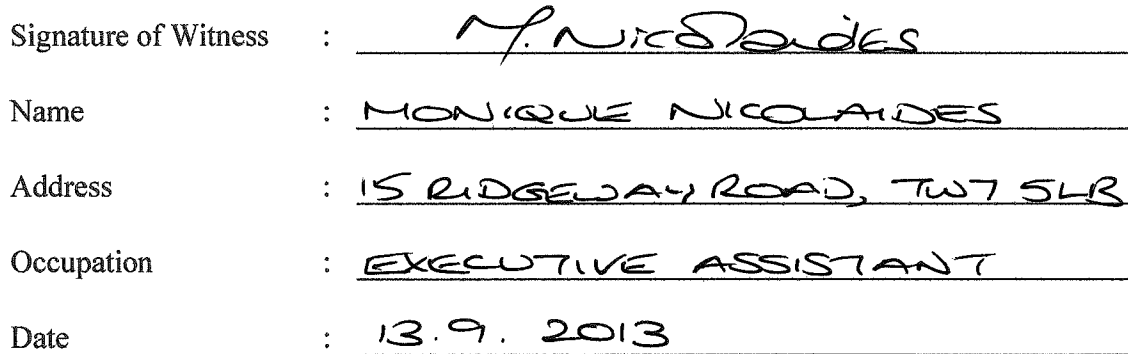 Signature of Witness : M. Nicolaides
Name : MONIQUE NICOLAIDES
Address : 15 RIDGEWAY ROAD, TW7 5LB
Occupation : EXECUTIVE ASSISTANT
Date : 13.9. 2013